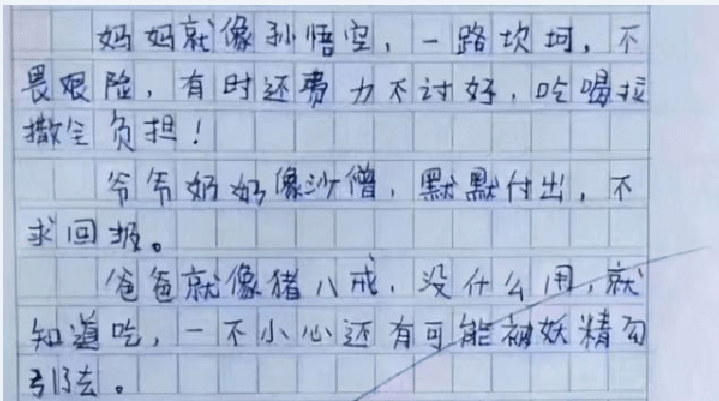 妈妈就像孙悟空，一路坎坷，不
畏艰险，有时还费力不讨好，吃喝拉
撒全负担！
爷爷奶奶像沙僧，默默付出，不
求回报。
爸爸就像猪八戒，没什么用，就
知道吃，一不小心还有可能被妖精勾
引去。